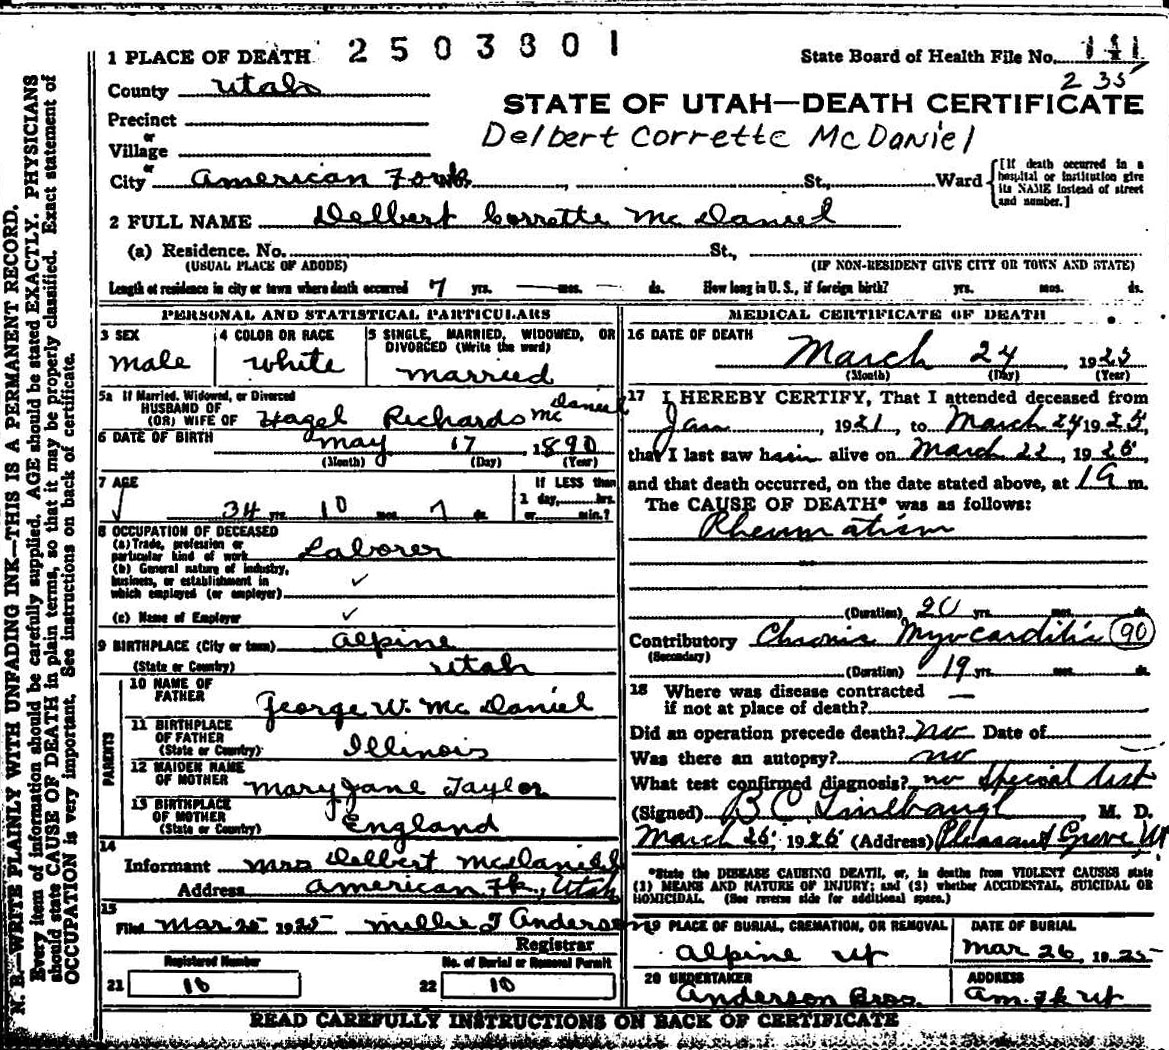 1 PLACE OF DEATH 2503801
State Board of Health File No. 111
235
County Utah
STATE OF UTAH—DEATH CERTIFICATE
Precinct
Delbert Corrette McDaniel
or
Village
or
City American Fork No. , St., Ward
[If death occurred in a hospital or institution give its NAME instead of street and number.]
2 FULL NAME Delbert Corrette McDaniel
(a) Residence. No. St.,
(USUAL PLACE OF ABODE) (IF NON-RESIDENT GIVE CITY OR TOWN AND STATE)
Length of residence in city or town where death occurred 7 yrs. — mos. — ds. How long in U. S., if foreign birth? yrs. mos. ds.
PERSONAL AND STATISTICAL PARTICULARS
3 SEX
male
4 COLOR OR RACE
white
5 SINGLE, MARRIED, WIDOWED, OR DIVORCED (Write the word)
married
5a If Married, Widowed, or Divorced
HUSBAND OF
(OR) WIFE OF Hazel Richards McDaniel
6 DATE OF BIRTH may 17 1890
(Month) (Day) (Year)
7 AGE
34 yrs. 10 mos. 7 ds.
If LESS than
1 day, hrs.
or min.?
8 OCCUPATION OF DECEASED
(a) Trade, profession or
particular kind of work Laborer
(b) General nature of industry,
business, or establishment in
which employed (or employer)
(c) Name of Employer
9 BIRTHPLACE (City or town) Alpine
(State or Country) Utah
PARENTS
10 NAME OF
FATHER George W. McDaniel
11 BIRTHPLACE
OF FATHER
(State or Country) Illinois
12 MAIDEN NAME
OF MOTHER Mary Jane Taylor
13 BIRTHPLACE
OF MOTHER
(State or Country) England
14
Informant Mrs Delbert McDaniel
Address American Fk, Utah
15
Filed Mar 25 1925 Millie T Anderson
Registrar
Registered Number
21 10
No. of Burial or Removal Permit
22 10
MEDICAL CERTIFICATE OF DEATH
16 DATE OF DEATH
March 24 1925
(Month) (Day) (Year)
17 I HEREBY CERTIFY, That I attended deceased from
Jan , 1921, to March 24 1925,
that I last saw him alive on March 22, 1925,
and that death occurred, on the date stated above, at 1 a m.
The CAUSE OF DEATH* was as follows:
Rheumatism
(Duration) 20 yrs. mos. ds.
Contributory Chronic Myocarditis 90
(Secondary)
(Duration) 19 yrs. mos. ds.
18 Where was disease contracted
if not at place of death? —
Did an operation precede death? no Date of
Was there an autopsy? no
What test confirmed diagnosis? no special test
(Signed) B C Linebaugh M. D.
March 25, 1925 (Address) Pleasant Grove, Ut
*State the DISEASE CAUSING DEATH, or, in deaths from VIOLENT CAUSES state
(1) MEANS AND NATURE OF INJURY; and (2) whether ACCIDENTAL, SUICIDAL OR
HOMICIDAL. (See reverse side for additional space.)
19 PLACE OF BURIAL, CREMATION, OR REMOVAL
Alpine Ut
DATE OF BURIAL
Mar 26, 1925
20 UNDERTAKER
Anderson Bros.
ADDRESS
Am. Fk Ut
READ CAREFULLY INSTRUCTIONS ON BACK OF CERTIFICATE
N. B.—WRITE PLAINLY WITH UNFADING INK—THIS IS A PERMANENT RECORD.
Every item of information should be carefully supplied. AGE should be stated EXACTLY. PHYSICIANS
should state CAUSE OF DEATH in plain terms, so that it may be properly classified. Exact statement of
OCCUPATION is very important. See instructions on back of certificate.